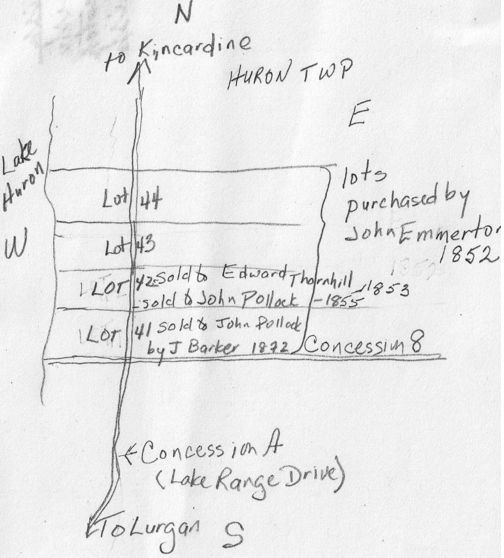 N
to Kincardine
HURON TWP
E
Lake
Huron
W
lots
purchased by
John Emmerton
1852
Lot 44
Lot 43
LOT 42 - Sold to Edward Thornhill - 1853
- sold to John Pollock - 1855
LOT 41 Sold to John Pollock
by J Barker 1872
Concession 8
Concession A
(Lake Range Drive)
To Lurgan
S